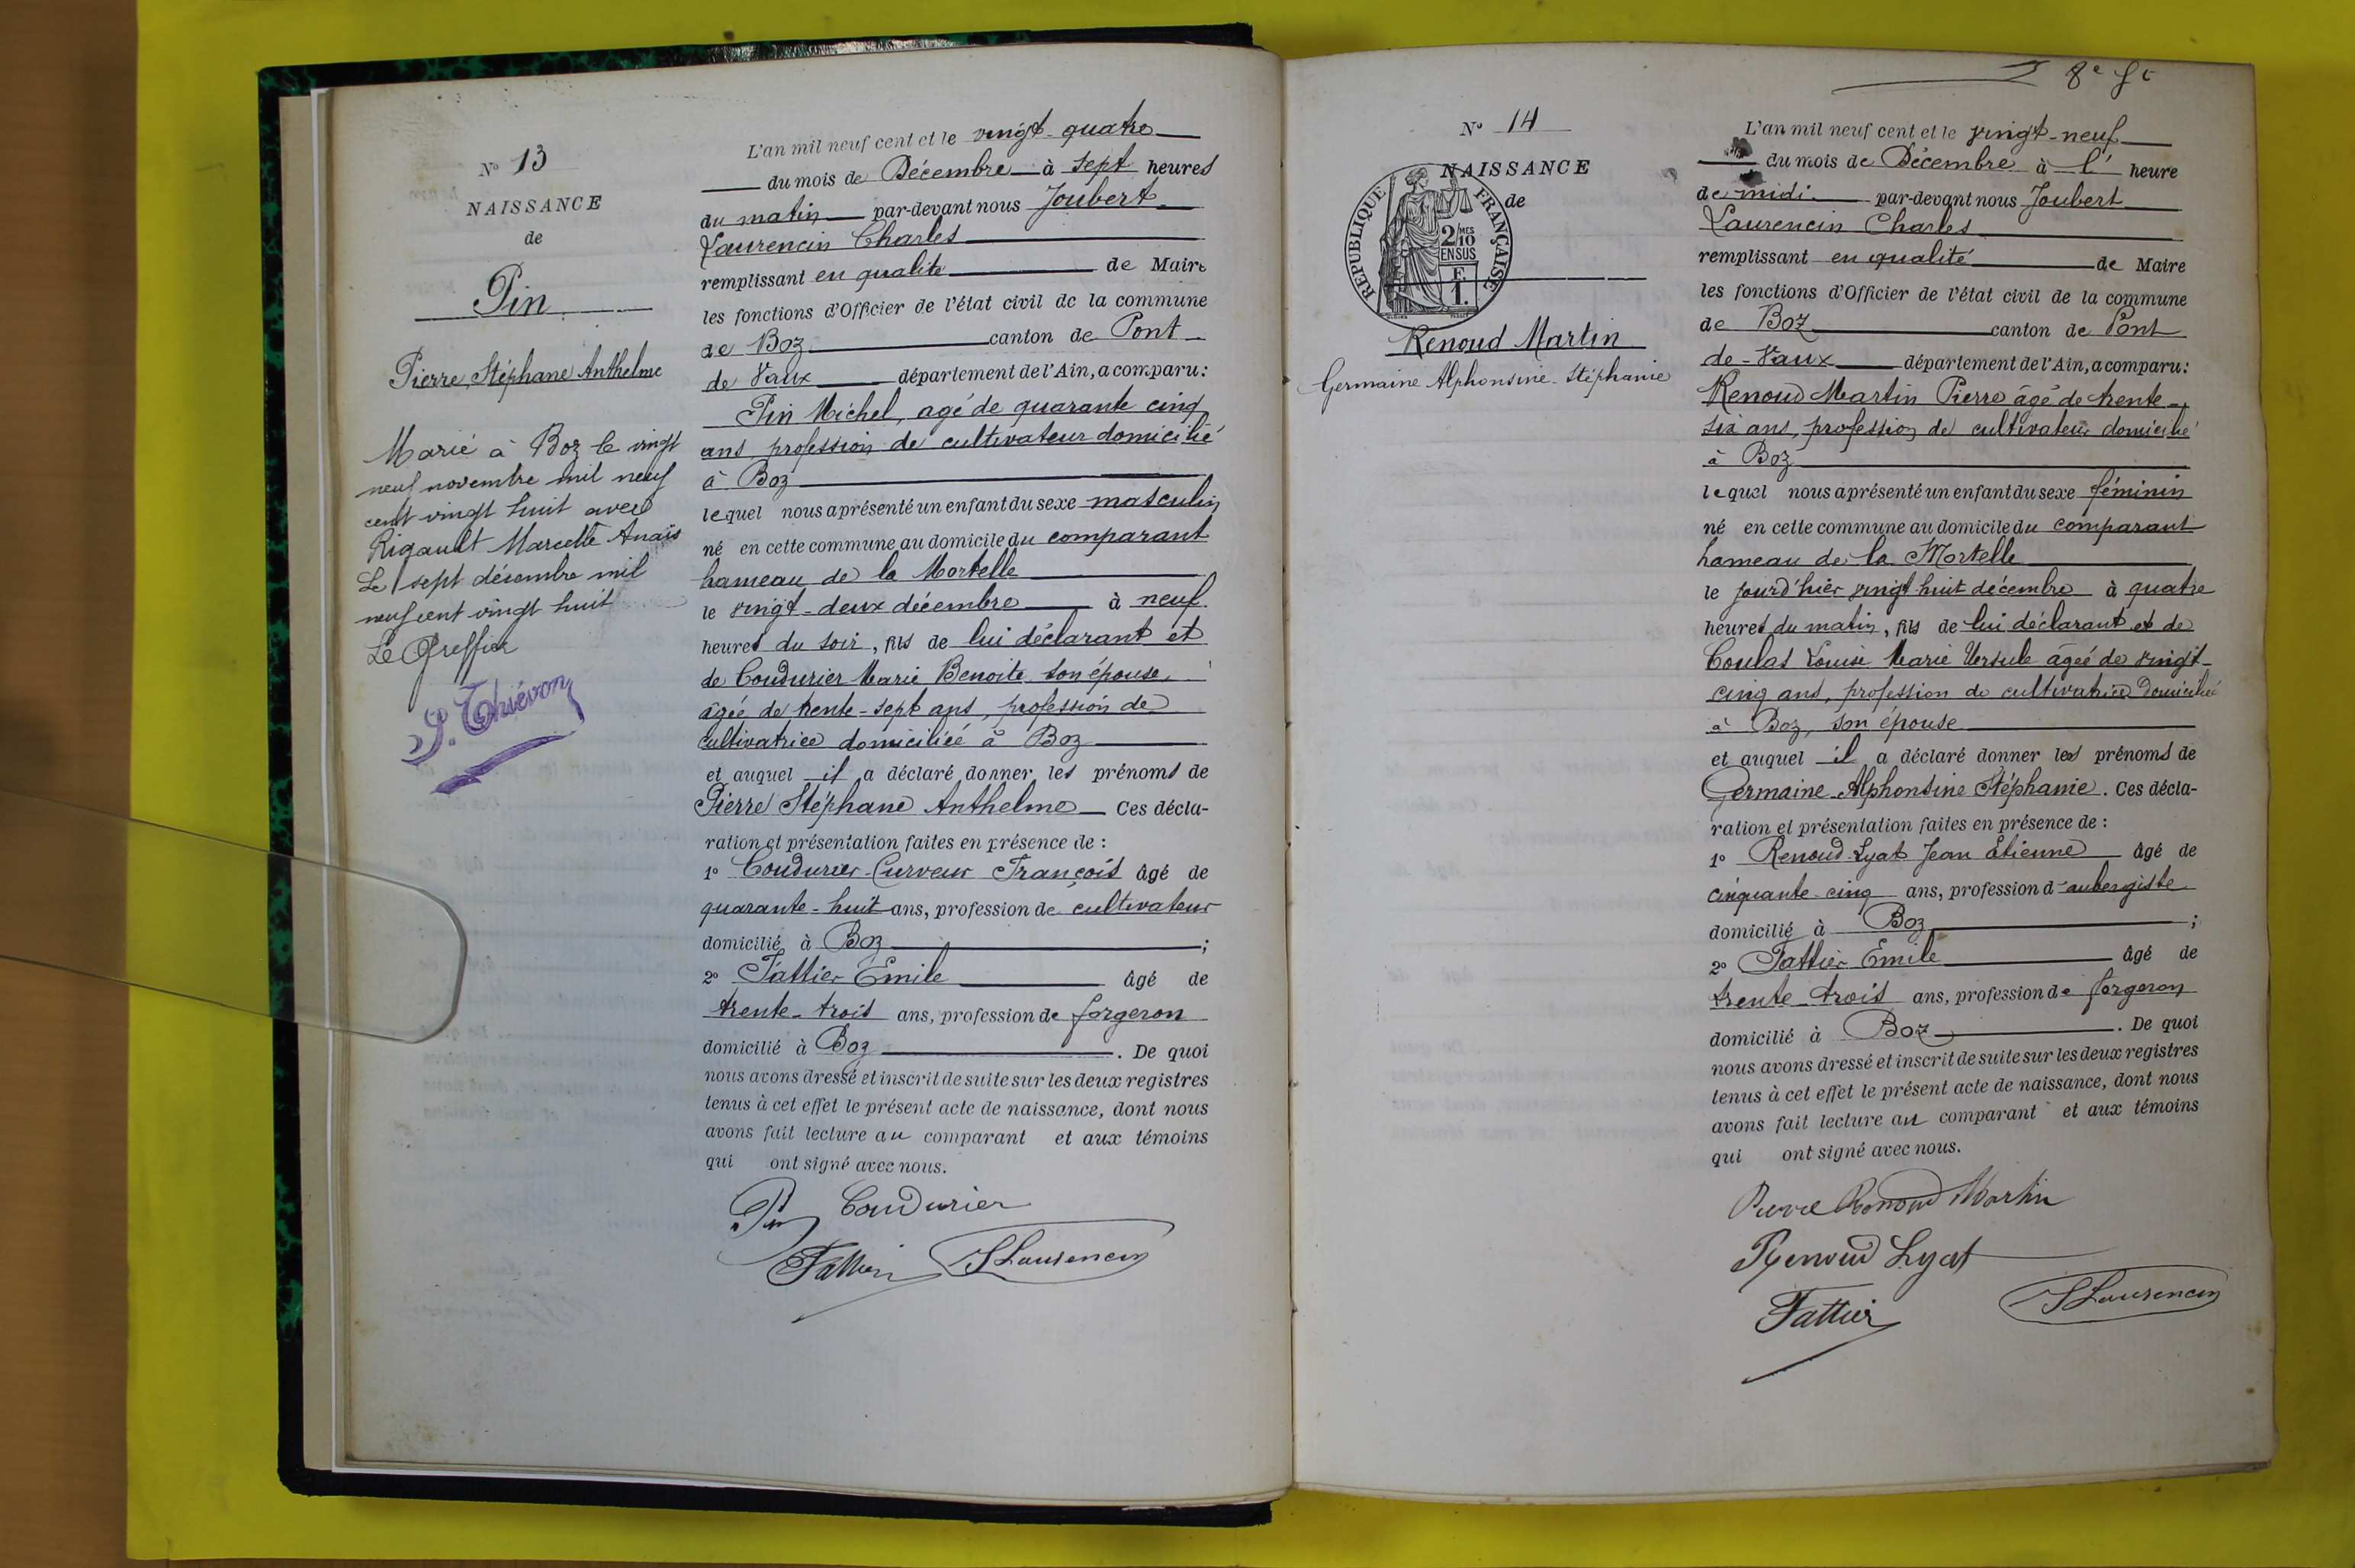 No 13
NAISSANCE
de
Pin
Pierre, Stéphane Anthelme
Marié à Boz le vingt
neuf novembre mil neuf
cent vingt huit avec
Rigault Marcelle Anaïs
Le sept décembre mil
neuf cent vingt huit
Le Greffier
S. Thiévon
L'an mil neuf cent et le vingt-quatre
du mois de Décembre à sept heures
du matin par-devant nous Joubert
Laurencin Charles
remplissant en qualité de Maire
les fonctions d'Officier de l'état civil de la commune
de Boz canton de Pont
de Vaux département de l'Ain, a comparu:
Pin Michel, agé de quarante cinq
ans, profession de cultivateur domicilié
à Boz
lequel nous a présenté un enfant du sexe masculin
né en cette commune au domicile du comparant
hameau de la Mortelle
le vingt-deux décembre à neuf
heures du soir, fils de lui déclarant et
de Coudurier Marie Benoite son épouse,
âgée de trente-sept ans, profession de
cultivatrice domiciliée à Boz
et auquel il a déclaré donner les prénoms de
Pierre Stéphane Anthelme Ces décla-
ration et présentation faites en présence de :
1° Coudurier-Curveur François âgé de
quarante-huit ans, profession de cultivateur
domicilié à Boz ;
2° Fattier Emile âgé de
trente-trois ans, profession de forgeron
domicilié à Boz . De quoi
nous avons dressé et inscrit de suite sur les deux registres
tenus à cet effet le présent acte de naissance, dont nous
avons fait lecture au comparant et aux témoins
qui ont signé avec nous.
Pin Coudurier
Fattier JLaurencin
No 14
NAISSANCE
de
REPUBLIQUE FRANÇAISE
2/10 MES
EN SUS
F.
1.
Renoud Martin
Germaine Alphonsine-Stéphanie
8e ft
L'an mil neuf cent et le vingt-neuf
du mois de Décembre à l' heure
de midi par-devant nous Joubert
Laurencin Charles
remplissant en qualité de Maire
les fonctions d'Officier de l'état civil de la commune
de Boz canton de Pont
de-Vaux département de l'Ain, a comparu:
Renoud Martin Pierre âgé de trente-
six ans, profession de cultivateur domicilié
à Boz
lequel nous a présenté un enfant du sexe féminin
né en cette commune au domicile du comparant
hameau de la Mortelle
le jourd'hier vingt huit décembre à quatre
heures du matin, fils de lui déclarant et de
Coulas Louise Marie Ursule âgée de vingt-
cinq ans, profession de cultivatrice domiciliée
à Boz, son épouse
et auquel il a déclaré donner les prénoms de
Germaine-Alphonsine Stéphanie. Ces décla-
ration et présentation faites en présence de :
1° Renoud-Lyat Jean Etienne âgé de
cinquante-cinq ans, profession d'aubergiste
domicilié à Boz ;
2° Fattier Emile âgé de
trente-trois ans, profession de forgeron
domicilié à Boz . De quoi
nous avons dressé et inscrit de suite sur les deux registres
tenus à cet effet le présent acte de naissance, dont nous
avons fait lecture au comparant et aux témoins
qui ont signé avec nous.
Pierre Renoud Martin
Renoud Lyat
Fattier JLaurencin